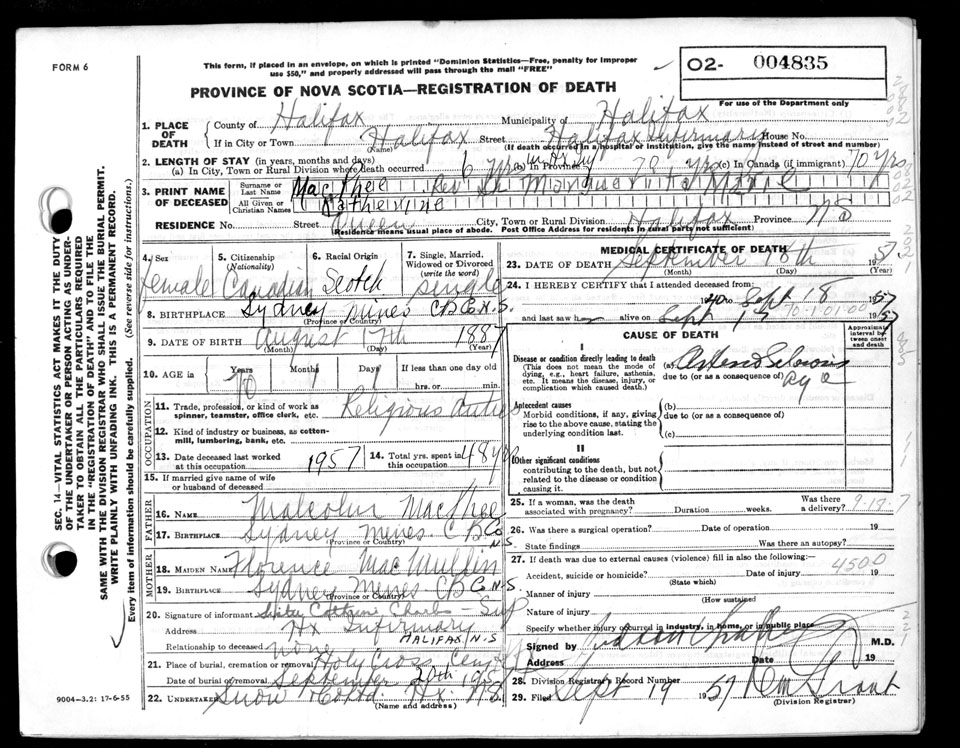 FORM 6
This form, if placed in an envelope, on which is printed "Dominion Statistics—Free, penalty for improper
use $50," and properly addressed will pass through the mail "FREE"
02- 004835
PROVINCE OF NOVA SCOTIA—REGISTRATION OF DEATH
For use of the Department only
1. PLACE OF DEATH County of Halifax Municipality of Halifax
If in City or Town Halifax Street Halifax Infirmary House No.
(Name) (If death occurred in a hospital or institution, give the name instead of street and number)
2. LENGTH OF STAY (in years, months and days)
(a) In City, Town or Rural Division where death occurred 6 yrs (b) In Province 70 yrs (c) In Canada (if immigrant) 70 yrs
3. PRINT NAME OF DECEASED Surname or Last Name MacPhee Rev Sr Marguerite Marie
All Given or Christian Names Catherine
RESIDENCE No. Street Queen City, Town or Rural Division Halifax Province NS
(Residence means usual place of abode. Post Office Address for residents in rural parts not sufficient)
4. Sex Female
5. Citizenship (Nationality) Canadian
6. Racial Origin Scotch
7. Single, Married, Widowed or Divorced (write the word) single
8. BIRTHPLACE Sydney Mines C.B. Co N.S.
(Province or Country)
9. DATE OF BIRTH August 17th 1887
(Month) (Day) (Year)
10. AGE in Years 70 Months 1 Days 1 If less than one day old
hrs. or min.
OCCUPATION
11. Trade, profession, or kind of work as spinner, teamster, office clerk, etc. Religious duties
12. Kind of industry or business, as cotton-mill, lumbering, bank, etc.
13. Date deceased last worked at this occupation 1957
14. Total yrs. spent in this occupation 48 yrs
15. If married give name of wife or husband of deceased
FATHER
16. NAME Malcolm MacPhee
17. BIRTHPLACE Sydney Mines C B Co N.S.
(Province or Country)
MOTHER
18. MAIDEN NAME Florence MacMullin
19. BIRTHPLACE Sydney Mines C B C. N.S.
(Province or Country)
20. Signature of informant Sister Catherine Charles - Sup
Address Hx Infirmary
HALIFAX N.S
Relationship to deceased none
21. Place of burial, cremation or removal Holy Cross Cem
Date of burial or removal September 20th 195
22. Undertaker Snow & Co Ltd. Hx. N.S.
(Name and address)
9004—3.2: 17-6-55
MEDICAL CERTIFICATE OF DEATH
23. DATE OF DEATH September 18th 1957
(Month) (Day) (Year)
24. I HEREBY CERTIFY that I attended deceased from:
19 to Sept 18 1957
and last saw her alive on Sept 17 1957
70-1-01-00
CAUSE OF DEATH
Approximate interval between onset and death
I
Disease or condition directly leading to death
(This does not mean the mode of dying, e.g., heart failure, asthenia, etc. It means the disease, injury, or complication which caused death.)
(a) Arteriosclerosis
due to (or as a consequence of) Age
Antecedent causes
Morbid conditions, if any, giving rise to the above cause, stating the underlying condition last.
(b)
due to (or as a consequence of)
(c)
II
Other significant conditions
contributing to the death, but not related to the disease or condition causing it.
25. If a woman, was the death associated with pregnancy? Duration weeks. Was there a delivery?
9-19-7
26. Was there a surgical operation? Date of operation 19
State findings Was there an autopsy?
27. If death was due to external causes (violence) fill in also the following:—
Accident, suicide or homicide? Date of injury 19
4500
(State which)
Manner of injury
(How sustained
Nature of injury
Specify whether injury occurred in industry, in home, or in public place
Signed by M.D.
Address Date 19
28. Division Registrar's Record Number
29. Filed Sept 19 1957
(Division Registrar)
SEC. 14—VITAL STATISTICS ACT MAKES IT THE DUTY
OF THE UNDERTAKER OR PERSON ACTING AS UNDER-
TAKER TO OBTAIN ALL THE PARTICULARS REQUIRED
IN THE "REGISTRATION OF DEATH" AND TO FILE THE
SAME WITH THE DIVISION REGISTRAR WHO SHALL ISSUE THE BURIAL PERMIT.
WRITE PLAINLY WITH UNFADING INK. THIS IS A PERMANENT RECORD.
Every item of information should be carefully supplied. (See reverse side for instructions.)